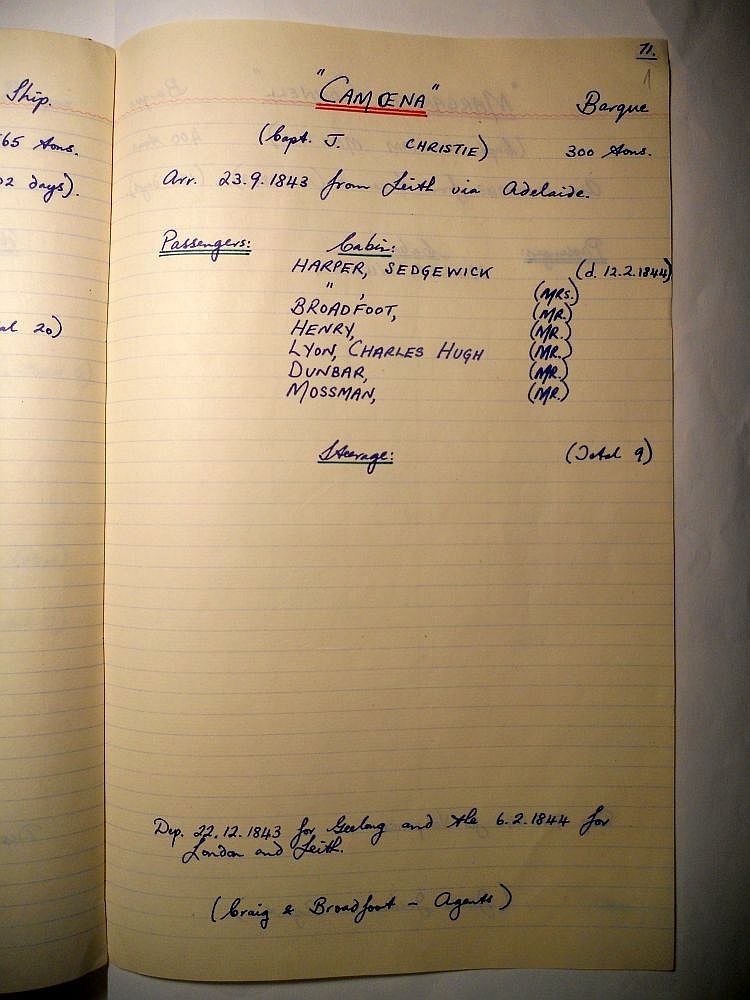 71.
1
Ship.
"CAMŒNA"
Barque
65 tons.
(Capt. J. CHRISTIE)
300 tons.
02 days).
Arr. 23.9.1843 from Leith via Adelaide.
Passengers: Cabin:
HARPER, SEDGEWICK (d. 12.2.1844)
" , (MRS.)
BROADFOOT, (MR.)
HENRY, (MR.)
al 20)
LYON, CHARLES HUGH (MR.)
DUNBAR, (MR.)
MOSSMAN, (MR.)
Steerage: (Total 9)
Dep. 22.12.1843 for Geelong and the 6.2.1844 for
London and Leith.
(Craig & Broadfoot - Agents)